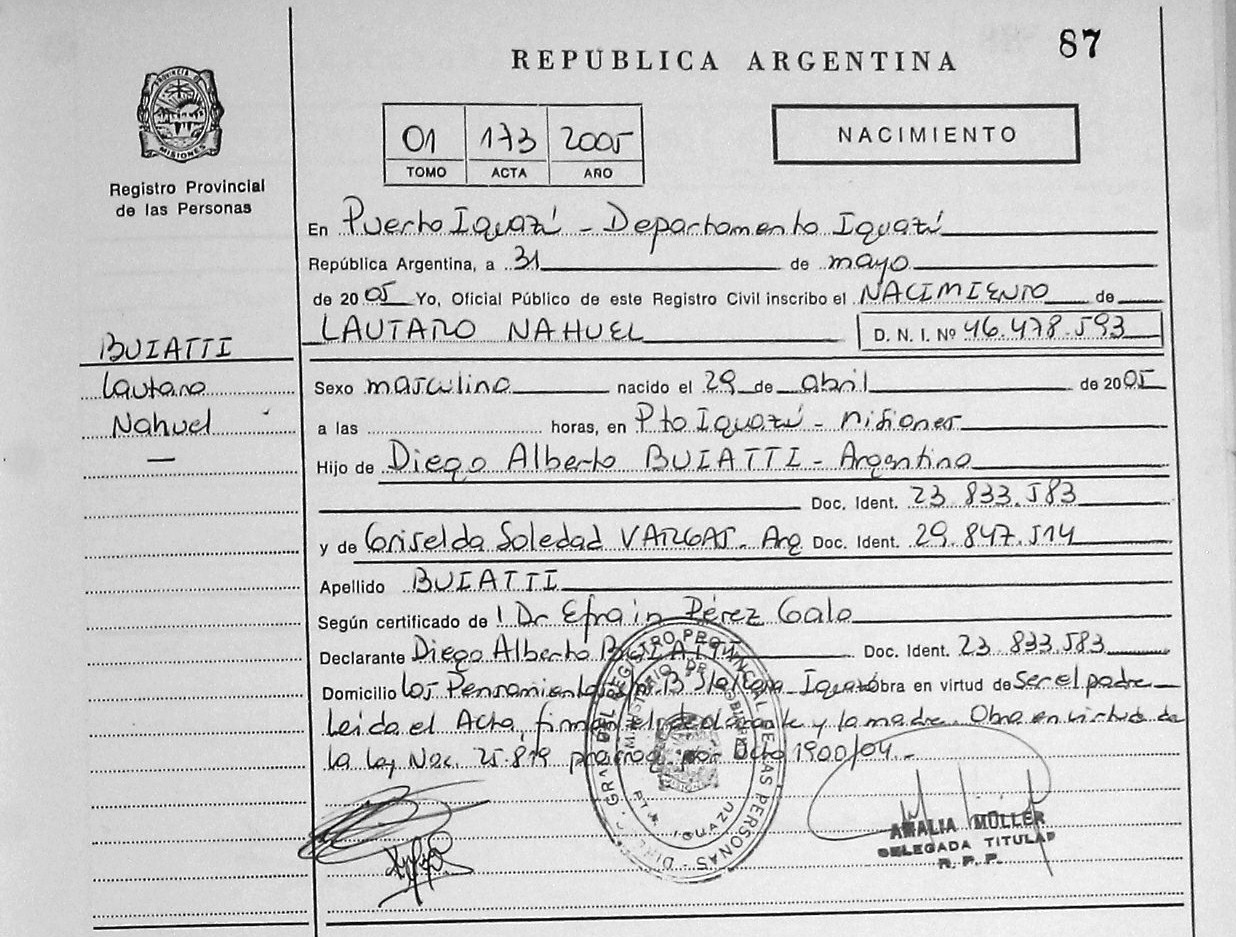 87
REPUBLICA ARGENTINA
PROVINCIA DE
MISIONES
Registro Provincial
de las Personas
01 173 2005
TOMO ACTA AÑO
NACIMIENTO
En Puerto Iguazú - Departamento Iguazú
República Argentina, a 31 de mayo
de 2005 Yo, Oficial Público de este Registro Civil inscribo el NACIMIENTO de
LAUTARO NAHUEL D. N. I. Nº 46.478.593
BUIATTI
Lautaro
Nahuel
Sexo masculino nacido el 29 de abril de 2005
a las horas, en Pto Iguazú - Misiones
Hijo de Diego Alberto BUIATTI - Argentino
Doc. Ident. 23.833.583
y de Griselda Soledad VARGAS - Arg Doc. Ident. 29.847.514
Apellido BUIATTI
Según certificado de l Dr Efrain Pérez Galo
Declarante Diego Alberto BUIATTI Doc. Ident. 23.833.583
Domicilio Los Pensamientos 13 Iguazú obra en virtud de ser el padre
Leida el Acta, firman el declarante y la madre. Obra en virtud de
la ley Nac. 25.819 por Dcto 1900/04.-
DIR. GRAL. DEL REGISTRO PROVINCIAL DE LAS PERSONAS
MINISTERIO DE GOBIERNO
MISIONES
PTO. IGUAZU
AMALIA MÜLLER
DELEGADA TITULAR
R. P. P.